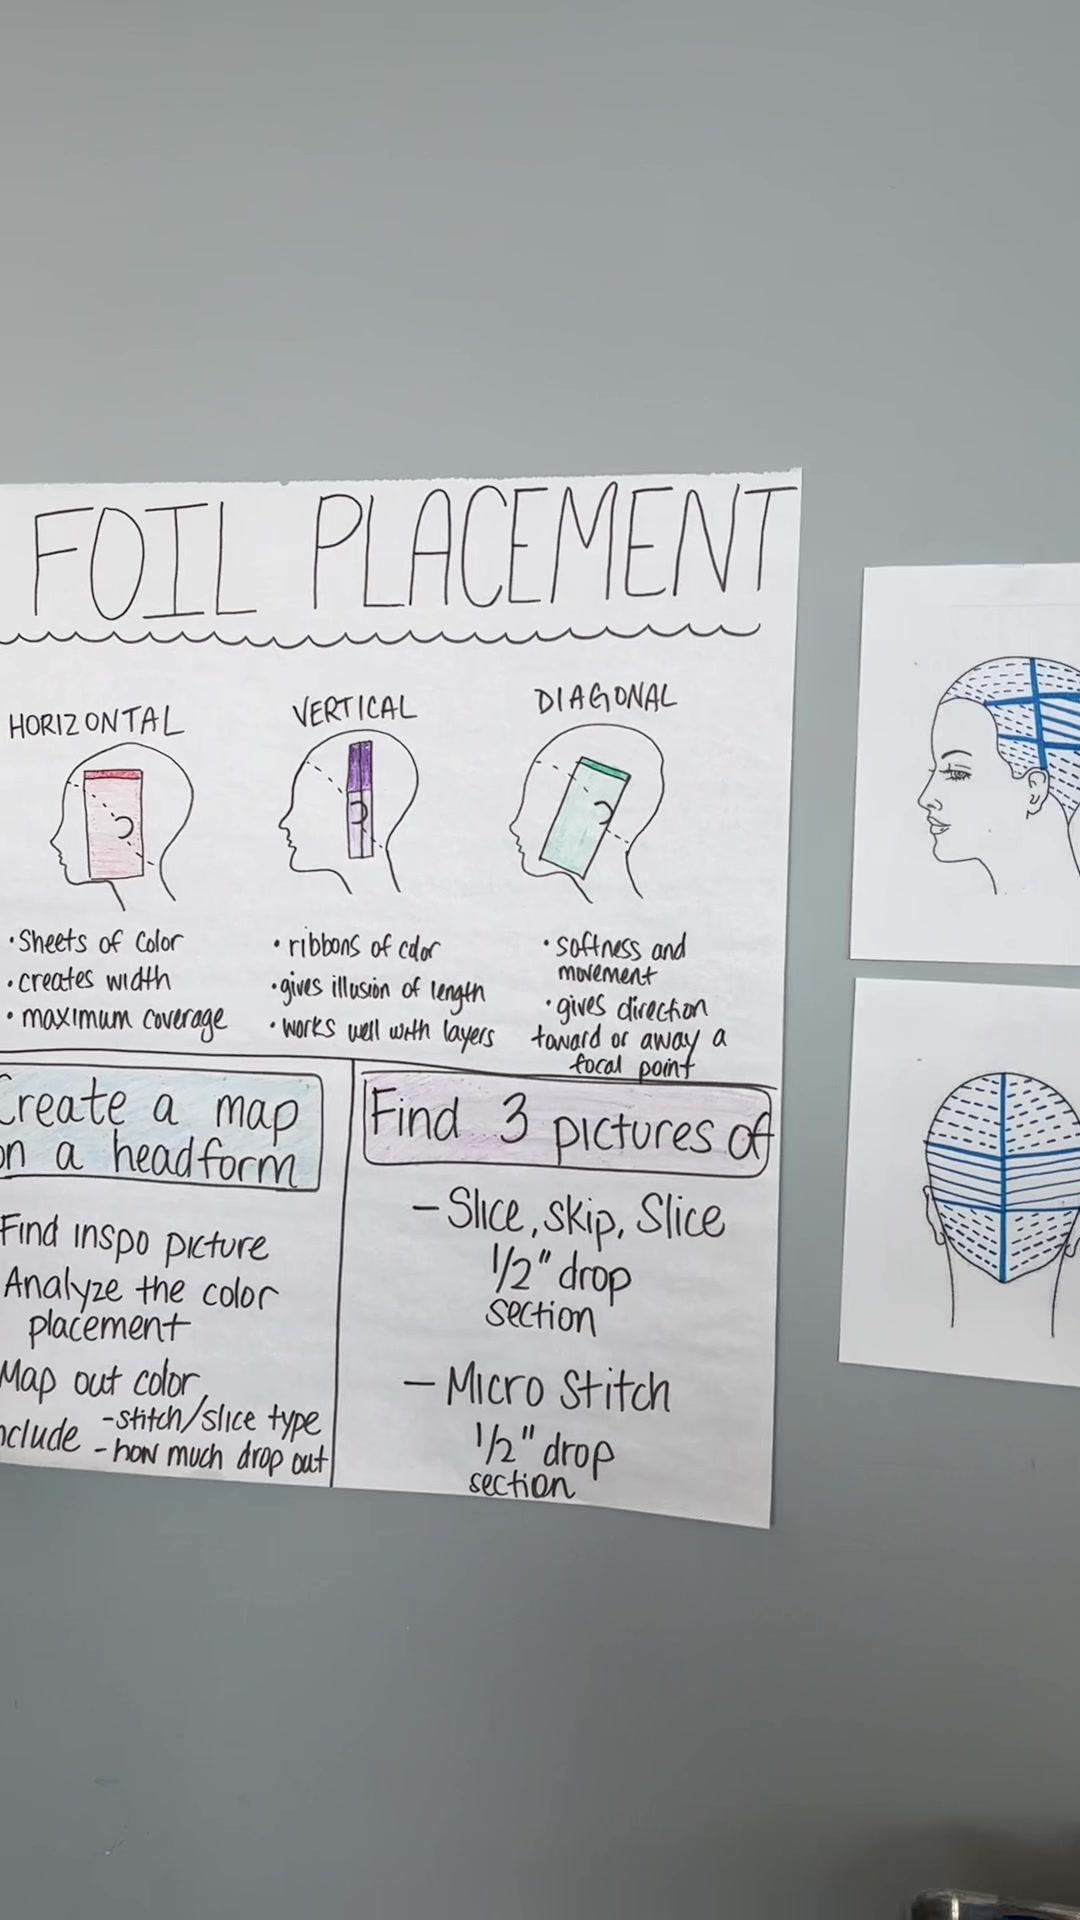 FOIL PLACEMENT
HORIZONTAL
• Sheets of color
• creates width
• maximum coverage
VERTICAL
• ribbons of color
• gives illusion of length
• works well with layers
DIAGONAL
• softness and
movement
• gives direction
toward or away a
focal point
Create a map
on a headform
Find inspo picture
Analyze the color
placement
Map out color,
include - stitch/slice type
- how much drop out
Find 3 pictures of
- Slice, skip, Slice
1/2" drop
section
- Micro Stitch
1/2" drop
section